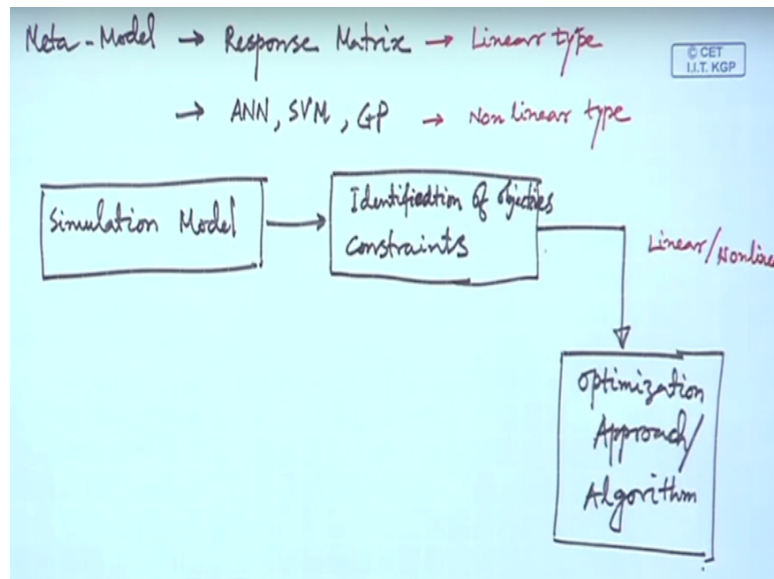 Meta-Model → Response Matrix → Linear type
© CET
I.I.T. KGP
→ ANN, SVM, GP → Non linear type
Simulation Model
Identification of objectives
constraints
Linear/Nonline
Optimization
Approach/
Algorithm